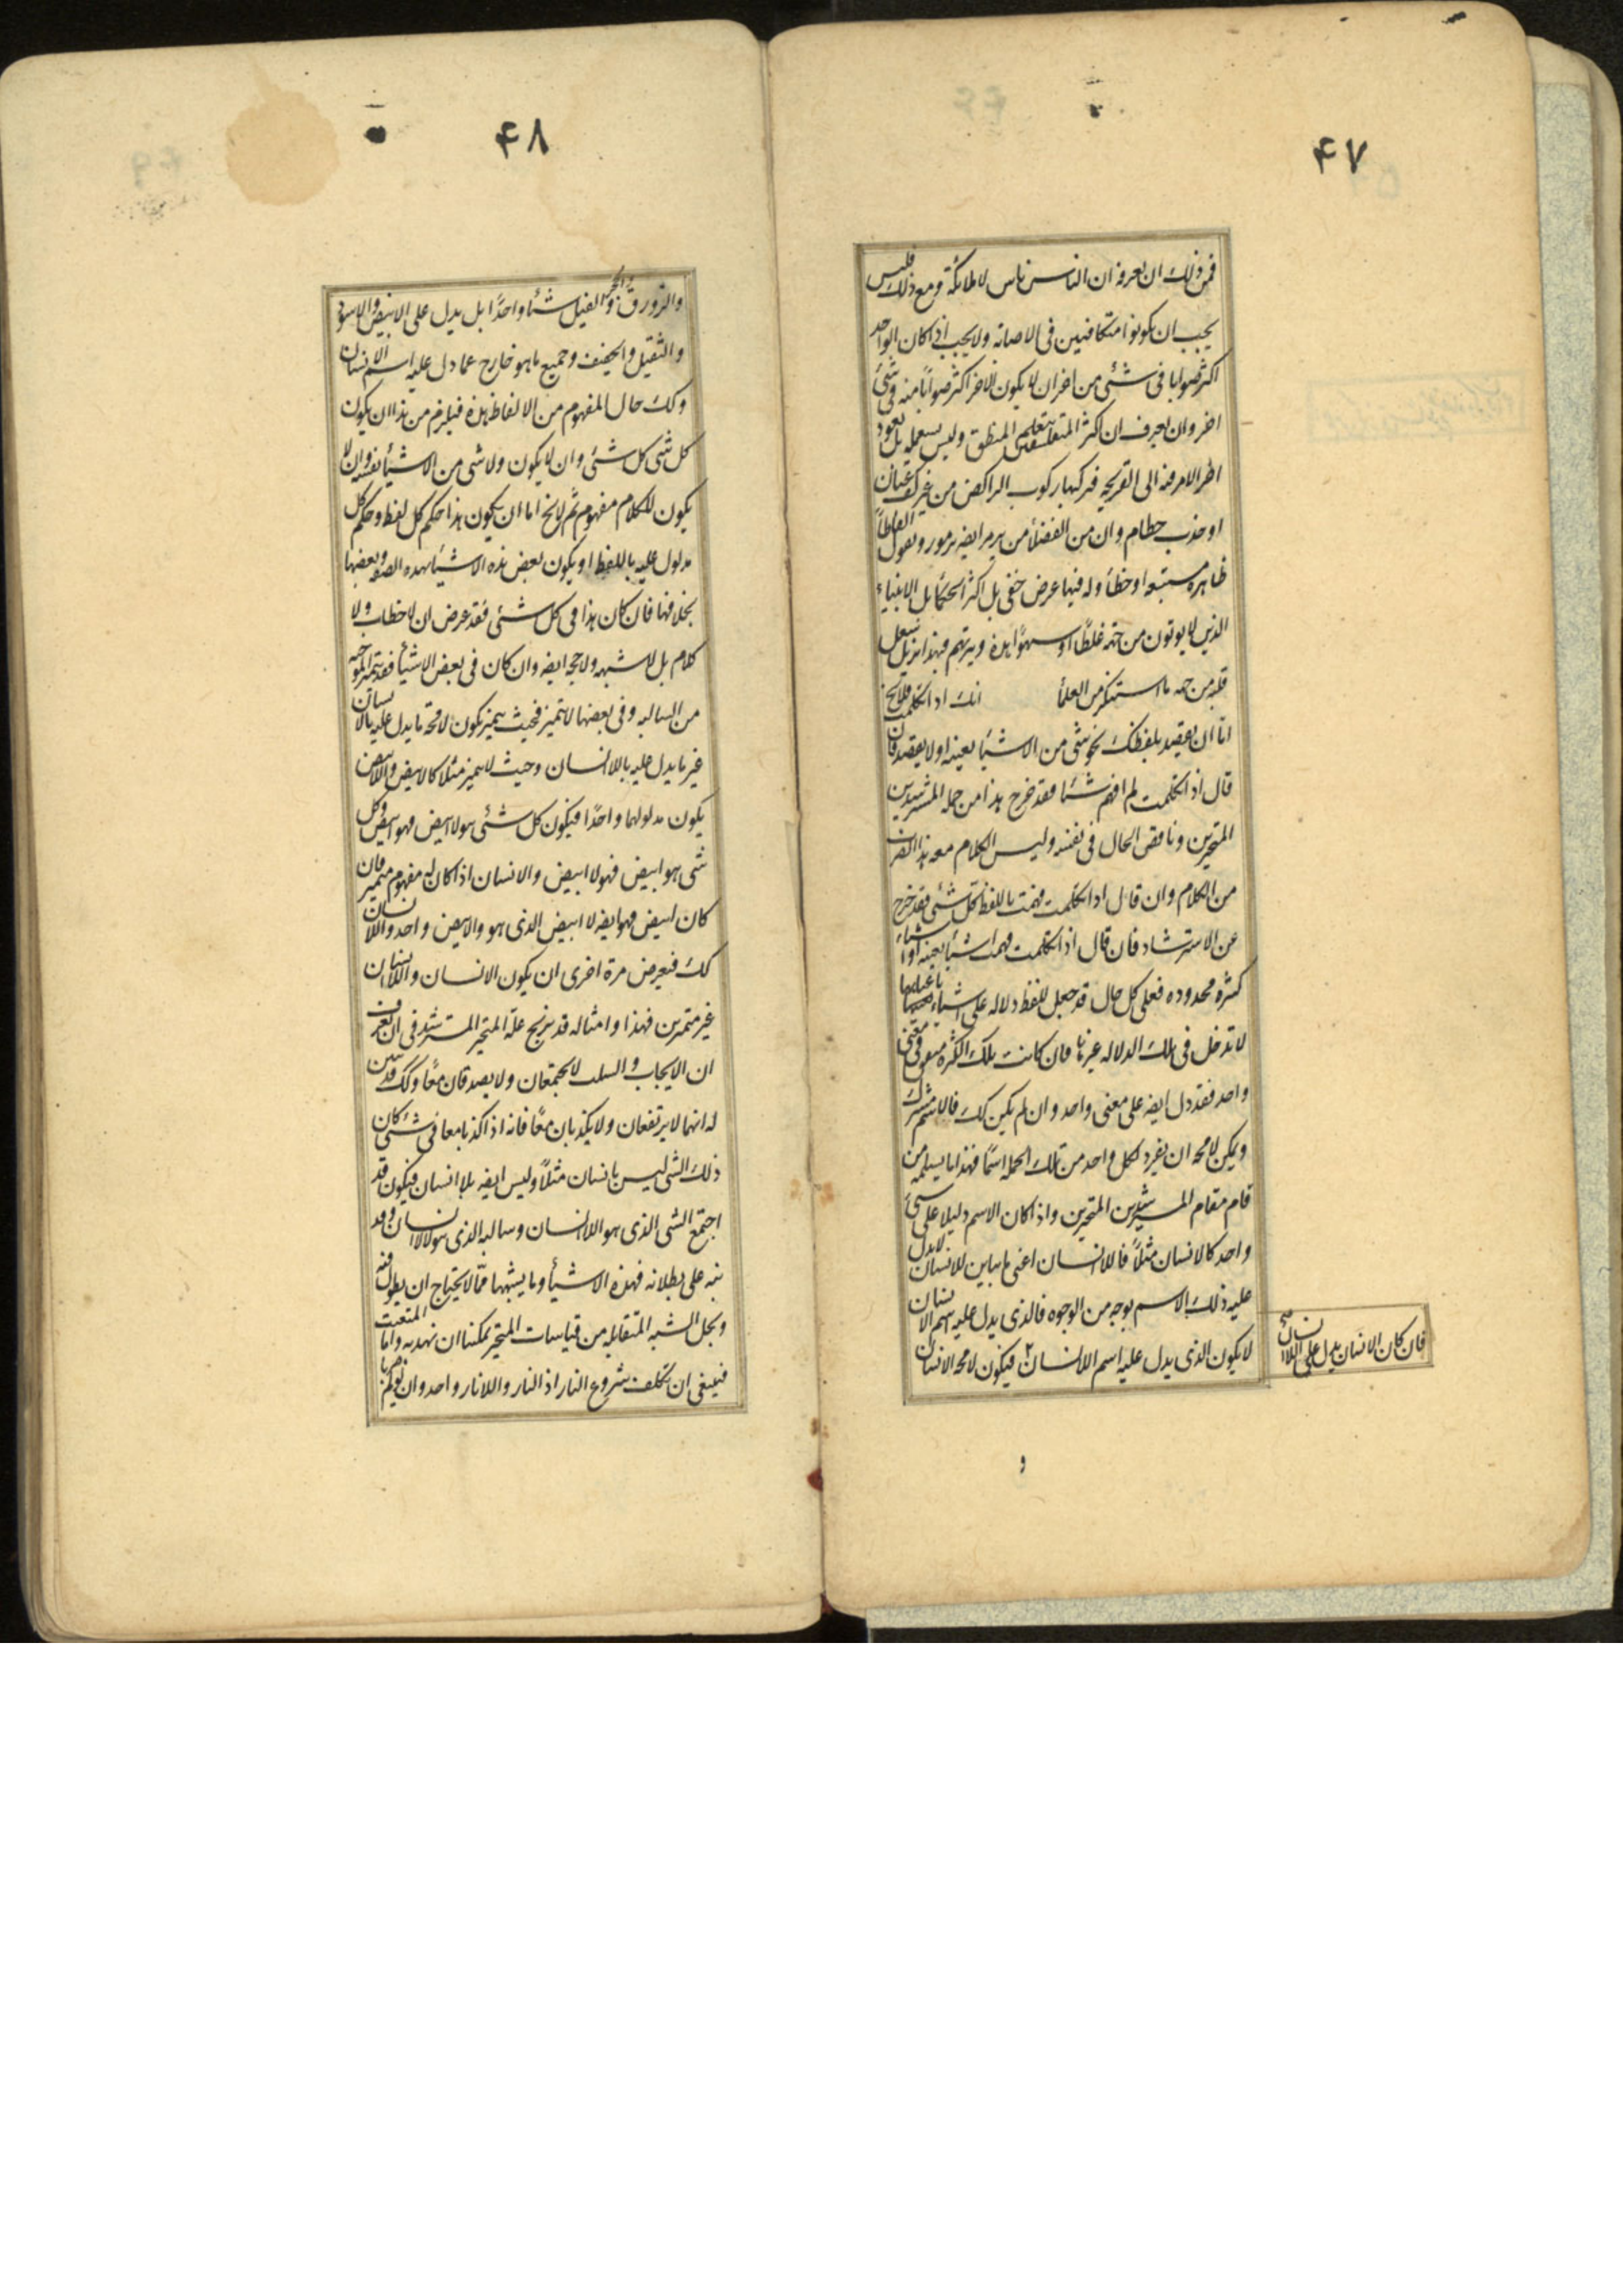 ۴۷
فمن ذلك ان نعرفه ان الناس ناس لا ملائكة و مع ذلك فليس
يجب ان يكونوا متكافئين فى الاصابة ولا يجب اذا كان الواحد
اكثر صوابا فى شئى من اخر ان لا يكون الاخر اكثر صوابا منه فى شئ
اخر وان يعرف ان اكثر المتفلسفين يتعلم المنطق وليس يستعمله بل يعود
اخر الامر فيه الى القريحة فيركبها ركوب الراكض من غير كف عنان
او جذب خطام وان من الفضلأ من يرمز ايضه برموز ويقول الفاظاً
ظاهرة مستبشعه او خطأ وله فيها غرض خفى بل اكثر الحكمأ بل الانبياء
الذين لا يوتون من جهة غلطاً او سهواً هذه وتيرتهم فهذا يزيل شغل
قلبه من جهة ما استنكر من العلمأ انك اذا تكلمت فلايخ
اما ان تقصد بلفظك نحو شئى من الاشيأ بعينه او لا تقصد فان
قال اذا تكلمت لم افهم شئا فقد خرج هذا من جملة المسترشدين
المتحيرين وناقض الحال فى نفسه وليس الكلام معه هذا الضرب
من الكلام وان قال اذا تكلمت فهمت باللفظ كل شئى فقد خرج
عن الاسترشاد فان قال اذا تكلمت فهمت شيأ بعينه او اشياء
كثرة محدوده فعلى كل حال قد جعل للفظ دلاله على اشياء باعيانها
لا تدخل فى تلك الدلاله غيرها فان كانت تلك الكثرة تتفق فى معنى
واحد فقد دل ايضه على معنى واحد وان لم يكن كك فالاسم مشترك
ويمكن لامحه ان يفرد لكل واحد من تلك الجمله اسماً فهذا ما يسلمه من
قام مقام المسترشدين المتحيرين واذا كان الاسم دليلا على شئ
واحد كالانسان مثلاً فاللاانسان اعنى ما يباين للانسان لا يدل
عليه ذلك الاسم بوجه من الوجوه فالذى يدل عليه اسم الانسان
لا يكون الذى يدل عليه اسم اللاانسان ٢ فيكون لامحه الانسان
فان كان الانسان يدل على اللاانسان صح
و
۴۸
والزورق والحجر والفيل شئا واحداً بل يدل على الابيض والاسود
والثقيل والخفيف وجميع ما هو خارج عما دل عليه اسم الانسان
وكك حال المفهوم من الالفاظ هذه فيلزم من هذا ان يكون
كل شى كل شئى وان لا يكون ولا شى من الاشيأ نفسه وان لا
يكون للكلام مفهوم ثم لايخ اما ان يكون هذا حكم كل لفظ وحكم كل
مدلول عليه باللفظ او يكون بعض هذه الاشيأ بهذه الصفه وبعضها
بخلافها فان كان هذا فى كل شئى فقد عرض ان لا خطاب ولا
كلام بل لا شبهه ولا حجه ايضه وان كان فى بعض الاشيأ فقد تتميز الموجبه
من السالبه وفى بعضها لا تتميز فحيث يتميز يكون لامحه ما يدل عليه بالانسان
غير ما يدل عليه باللاانسان وحيث لا يتميز مثلا كالابيض واللاابيض
يكون مدلولهما واحداً فيكون كل شئى هو لاابيض فهو ابيض وكل
شى هو ابيض فهو لا ابيض والانسان اذا كان له مفهوم متميز فان
كان ابيض فهو ايضه لا ابيض الذى هو والابيض واحد واللاانسان
كك فيعرض مرة اخرى ان يكون الانسان واللاانسان
غير متميزين فهذا وامثاله قد يزيح علة المتحير المسترشد فى ان يعرف
ان الايجاب والسلب لا يجتمعان ولا يصدقان معاً وكك قد تبين
له انهما لا يرتفعان ولا يكذبان معاً فانه اذا كذبا معا فى شئى كان
ذلك الشى ليس بانسان مثلاً وليس ايضه بلا انسان فيكون قد
اجتمع الشى الذى هو اللاانسان وسالبه الذى هو لالاانسان وقد
نبه على بطلانه فهذه الاشيأ وما يشبهها مما لا يحتاج ان يطول فيه
وبحل الشبه المتقابله من قياسات المتحير يمكننا ان نهديه واما المتعنت
فينبغى ان تكلف شروع النار اذ النار واللانار واحد وان يولم ضربا